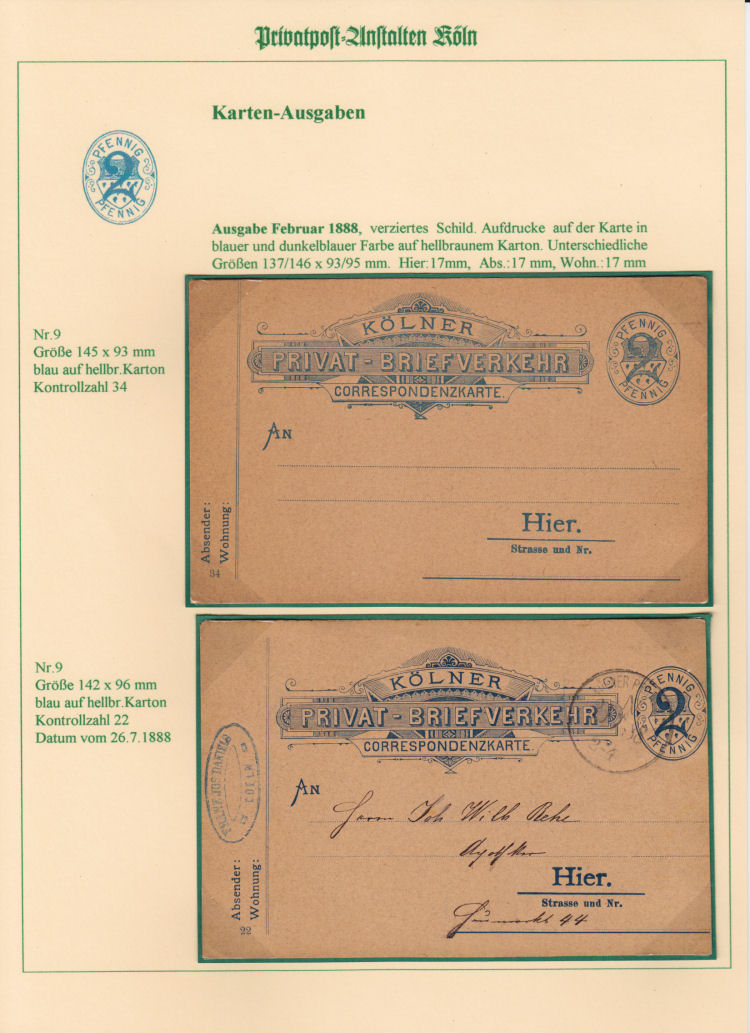 Privatpost-Anstalten Köln
Karten-Ausgaben
PFENNIG
2
PFENNIG
Ausgabe Februar 1888, verziertes Schild. Aufdrucke auf der Karte in
blauer und dunkelblauer Farbe auf hellbraunem Karton. Unterschiedliche
Größen 137/146 x 93/95 mm. Hier:17mm, Abs.:17 mm, Wohn.:17 mm
Nr.9
Größe 145 x 93 mm
blau auf hellbr.Karton
Kontrollzahl 34
KÖLNER
PRIVAT-BRIEFVERKEHR
CORRESPONDENZKARTE.
PFENNIG
2
PFENNIG
AN
Hier.
Strasse und Nr.
Absender:
Wohnung:
34
Nr.9
Größe 142 x 96 mm
blau auf hellbr.Karton
Kontrollzahl 22
Datum vom 26.7.1888
KÖLNER
PRIVAT-BRIEFVERKEHR
CORRESPONDENZKARTE.
PFENNIG
2
PFENNIG
JOS DANIELS
COELN
AN
Herrn Joh Wilh
Hier.
Strasse und Nr.
Heumarkt 44
Absender:
Wohnung:
22